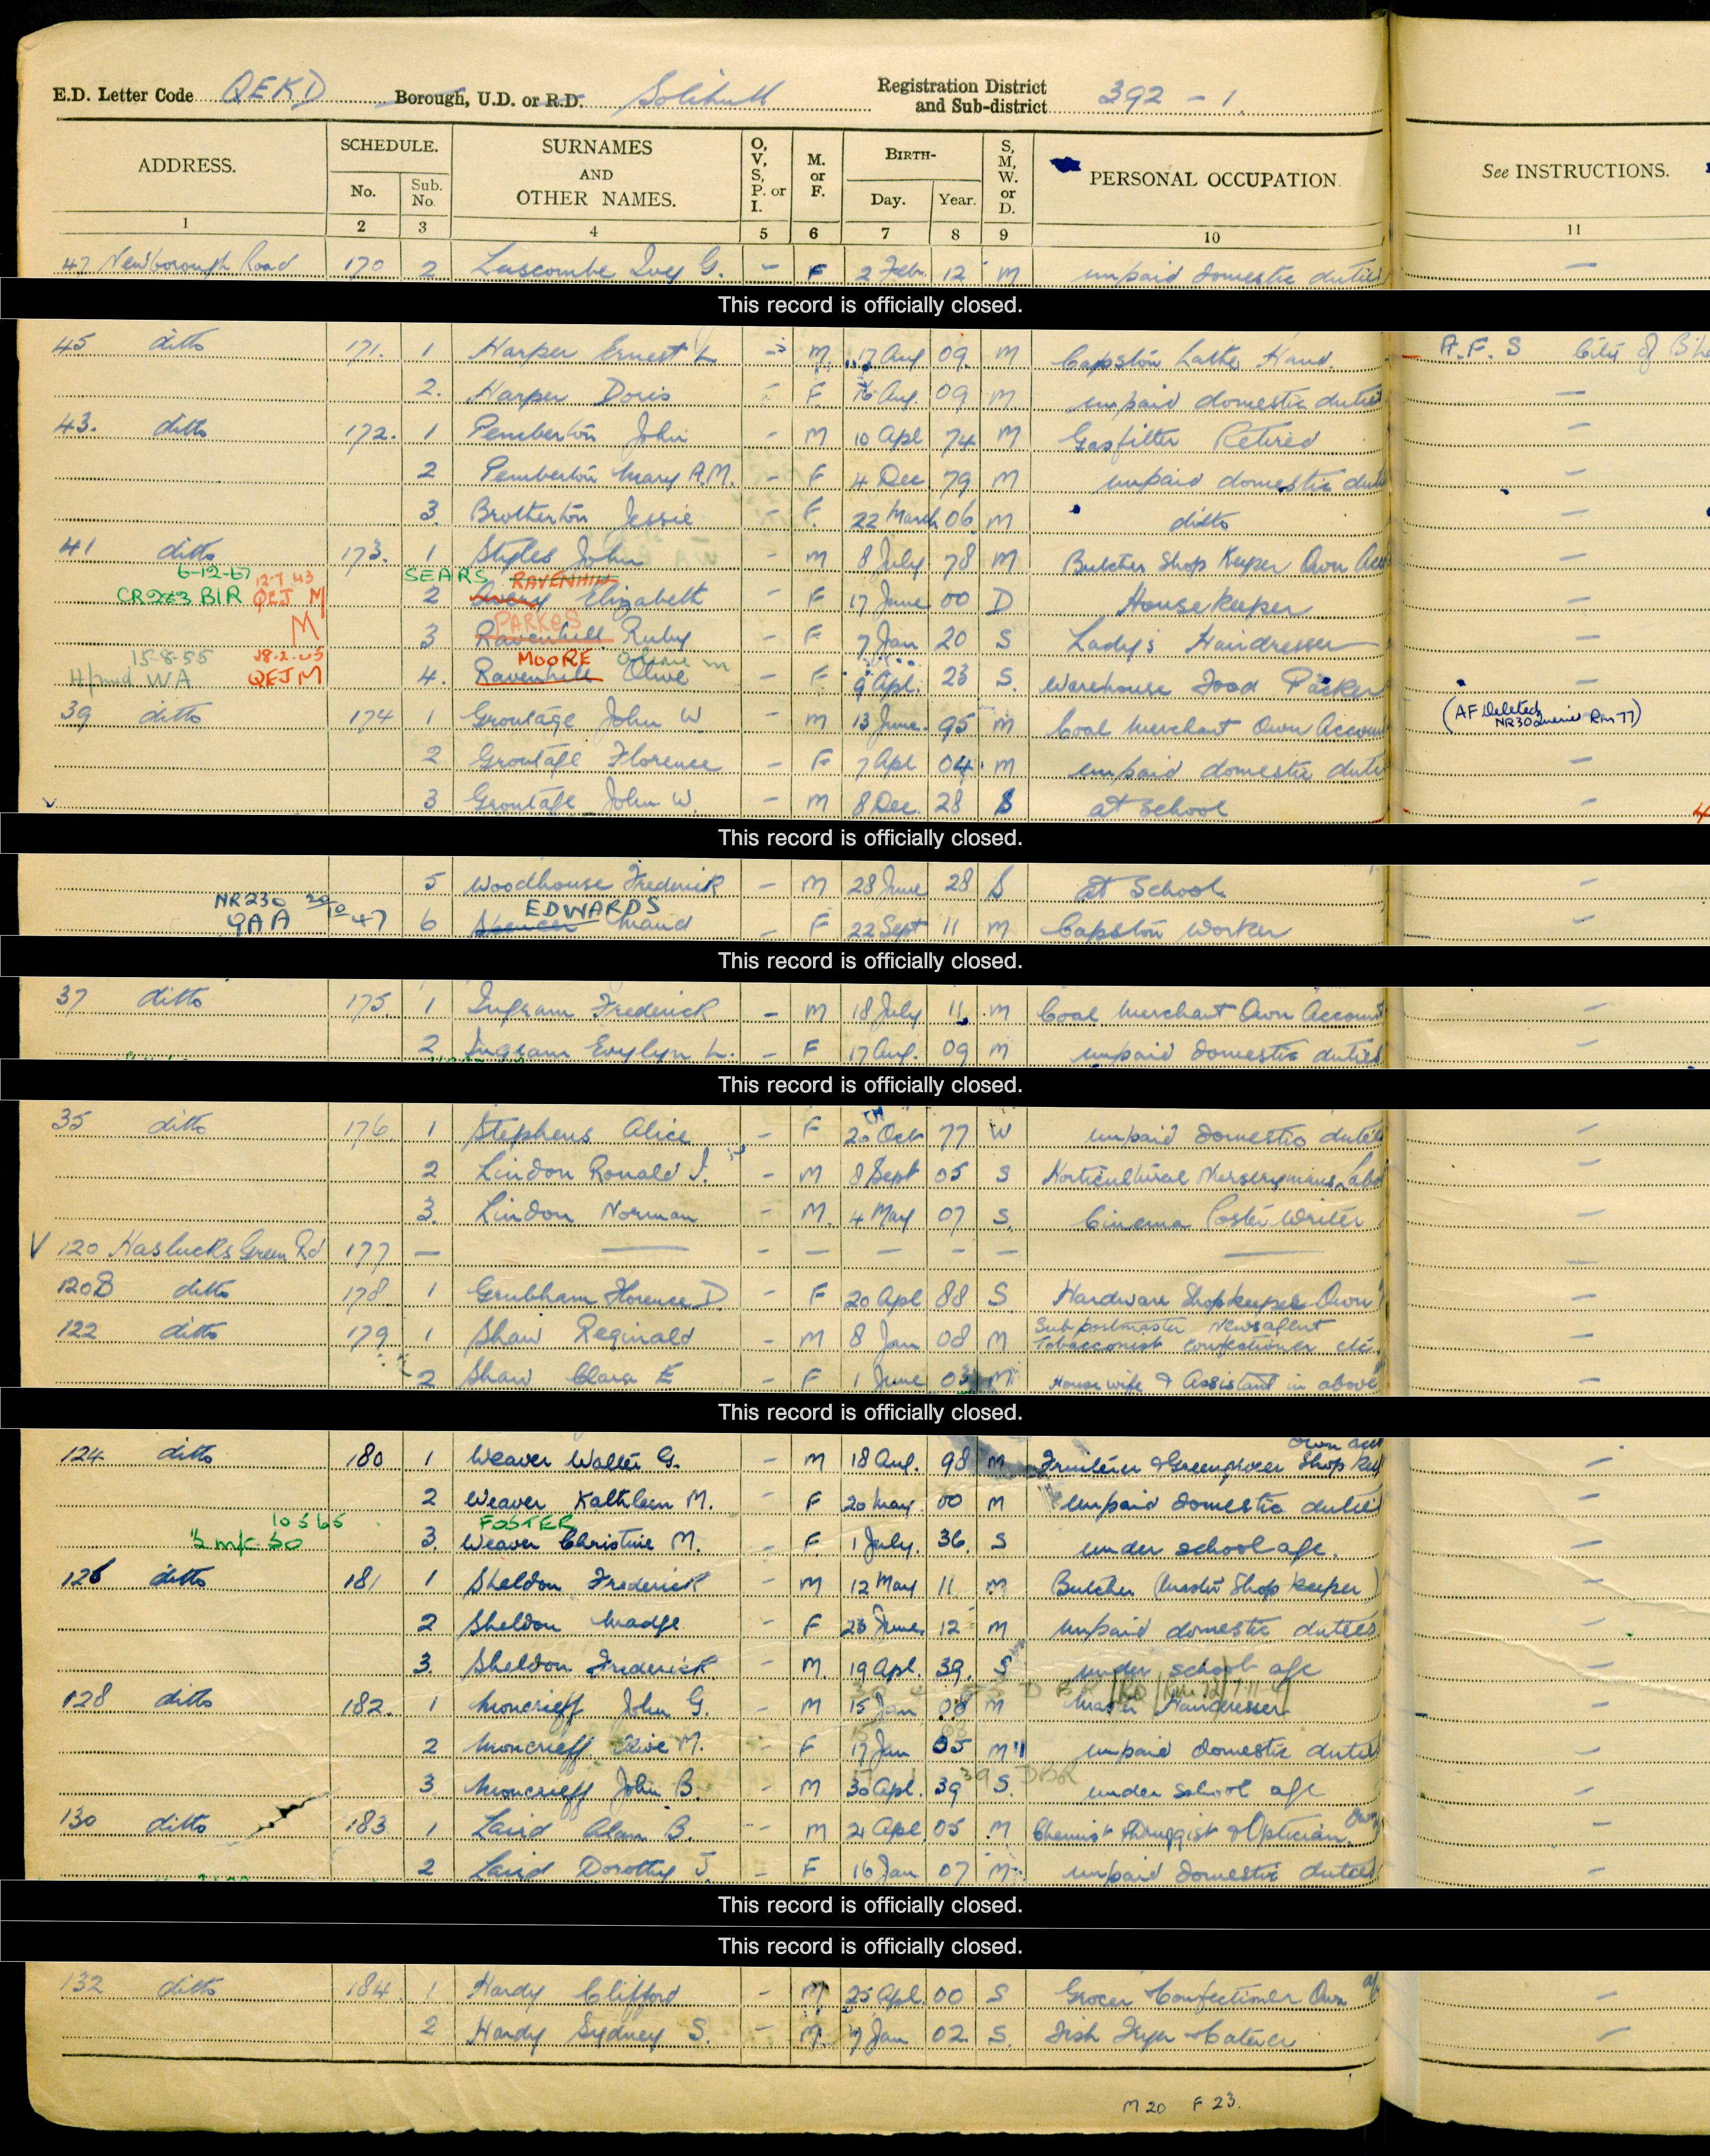 E.D. Letter Code QEKD Borough, U.D. or R.D. Solihull Registration District and Sub-district 392 - 1
ADDRESS. SCHEDULE. SURNAMES AND OTHER NAMES. O, V, S, P. or I. M. or F. BIRTH- S, M, W. or D. PERSONAL OCCUPATION. See INSTRUCTIONS.
No. Sub. No. Day. Year.
1 2 3 4 5 6 7 8 9 10 11
47 Newborough Road 170 2 Luscombe Ivy G. - F 2 Feb. 12 M unpaid domestic duties -
This record is officially closed.
45 ditto 171. 1 Harper Ernest L - M. 17 Aug 09. M Capston Lathe Hand. A.F.S City of B'h
2. Harper Doris - F. 16 Aug. 09 M unpaid domestic duties -
43. ditto 172. 1 Pemberton John - M 10 Apl 74 M Gasfitter Retired -
2 Pemberton Mary A.M. - F 4 Dec 79 M unpaid domestic duti -
3. Brotherton Jessie - F. 22 March 06 M ditto -
41 ditto 173. 1 Styles John - M 8 July 78 M. Butcher Shop Keeper Own Acc -
6-12-67 12-7 43 SEARS RAVENHILL
CR283 BIR QEJ M 2 Elizabeth - F 17 June 00 D House keeper -
M PARKES
3 Ravenhill Ruby - F 7 Jan 20 S Lady's Hairdresser -
15-8-55 18-2-45 MOORE Olive m
WA QEJ M 4. Ravenhill Olive - F 9 Apl. 23 S. Warehouse Food Packer -
39 ditto 174 1 Groutage John W - M 13 June 95 M Coal Merchant Own Accoun (AF Deleted NR30 Rm 77)
2 Groutage Florence - F 7 Apl 04. M unpaid domestic duti -
3 Groutage John W. - M 8 Dec. 28 S at School -
This record is officially closed.
5 Woodhouse Frederick - M 28 June 28 S at School -
NR230 20/10 47 EDWARDS
QAA 6 Spencer Maud - F 22 Sept 11 M Capston Worker -
This record is officially closed.
37 ditto 175. 1 Ingram Frederick - M 18 July 11 M Coal Merchant Own Account -
2 Ingram Evylyn L. - F 17 Aug. 09 M unpaid domestic duties -
This record is officially closed.
35 ditto 176 1 Stephens Alice - F 20 Oct 77 W unpaid domestic duties -
2 Lindon Ronald J. - M 8 Sept 05 S Horticultural Nurserymans Labo -
3. Lindon Norman - M. 4 May 07 S. Cinema Poster Writer -
V 120 Haslucks Green Rd 177 - - - - - - - - -
120B ditto 178 1 Grubham Florence D. - F 20 Apl 88 S. Hardware Shopkeeper Own -
122 ditto 179. 1 Shaw Reginald - M 8 Jan 08 M Sub postmaster Newsagent Tobacconist Confectioner etc. -
2 Shaw Clara E - F 1 June 03 M House wife & Assistant in above -
This record is officially closed.
own acc
124 ditto 180 1 Weaver Walter G. - M 18 Aug. 98 M Fruiterer & Greengrocer Shop Kee -
2 Weaver Kathleen M. - F 20 May 00 M unpaid domestic duties -
10 5 65 FOSTER
3. Weaver Christine M. - F. 1 July. 36. S under school age. -
126 ditto 181 1 Sheldon Frederick - M 12 May 11 M Butcher (Master Shop keeper) -
2 Sheldon Madge - F 23 June 12 M unpaid domestic duties. -
3. Sheldon Frederick - M. 19 Apl. 39. S under school age -
128 ditto 182. 1 Moncrieff John G. - M 15 Jan 08 M Master Hairdresser -
2 Moncrieff Olive M. - F 17 Jan 05 M unpaid domestic duties -
3. Moncrieff John B. - M 30 Apl. 39 S. under school age -
130 ditto 183 1 Laird Alan B. - M 21 Apl. 05 M Chemist Druggist & Optician. Own -
2 Laird Dorothy J. - F 16 Jan 07 M unpaid domestic duties -
This record is officially closed.
This record is officially closed.
132 ditto 184. 1 Hardy Clifford - M 25 Apl. 00 S Grocer Confectioner Own a/c -
2 Hardy Sydney S. - M. 7 Jan 02. S. Fish Fryer & Caterer -
M 20 F 23.